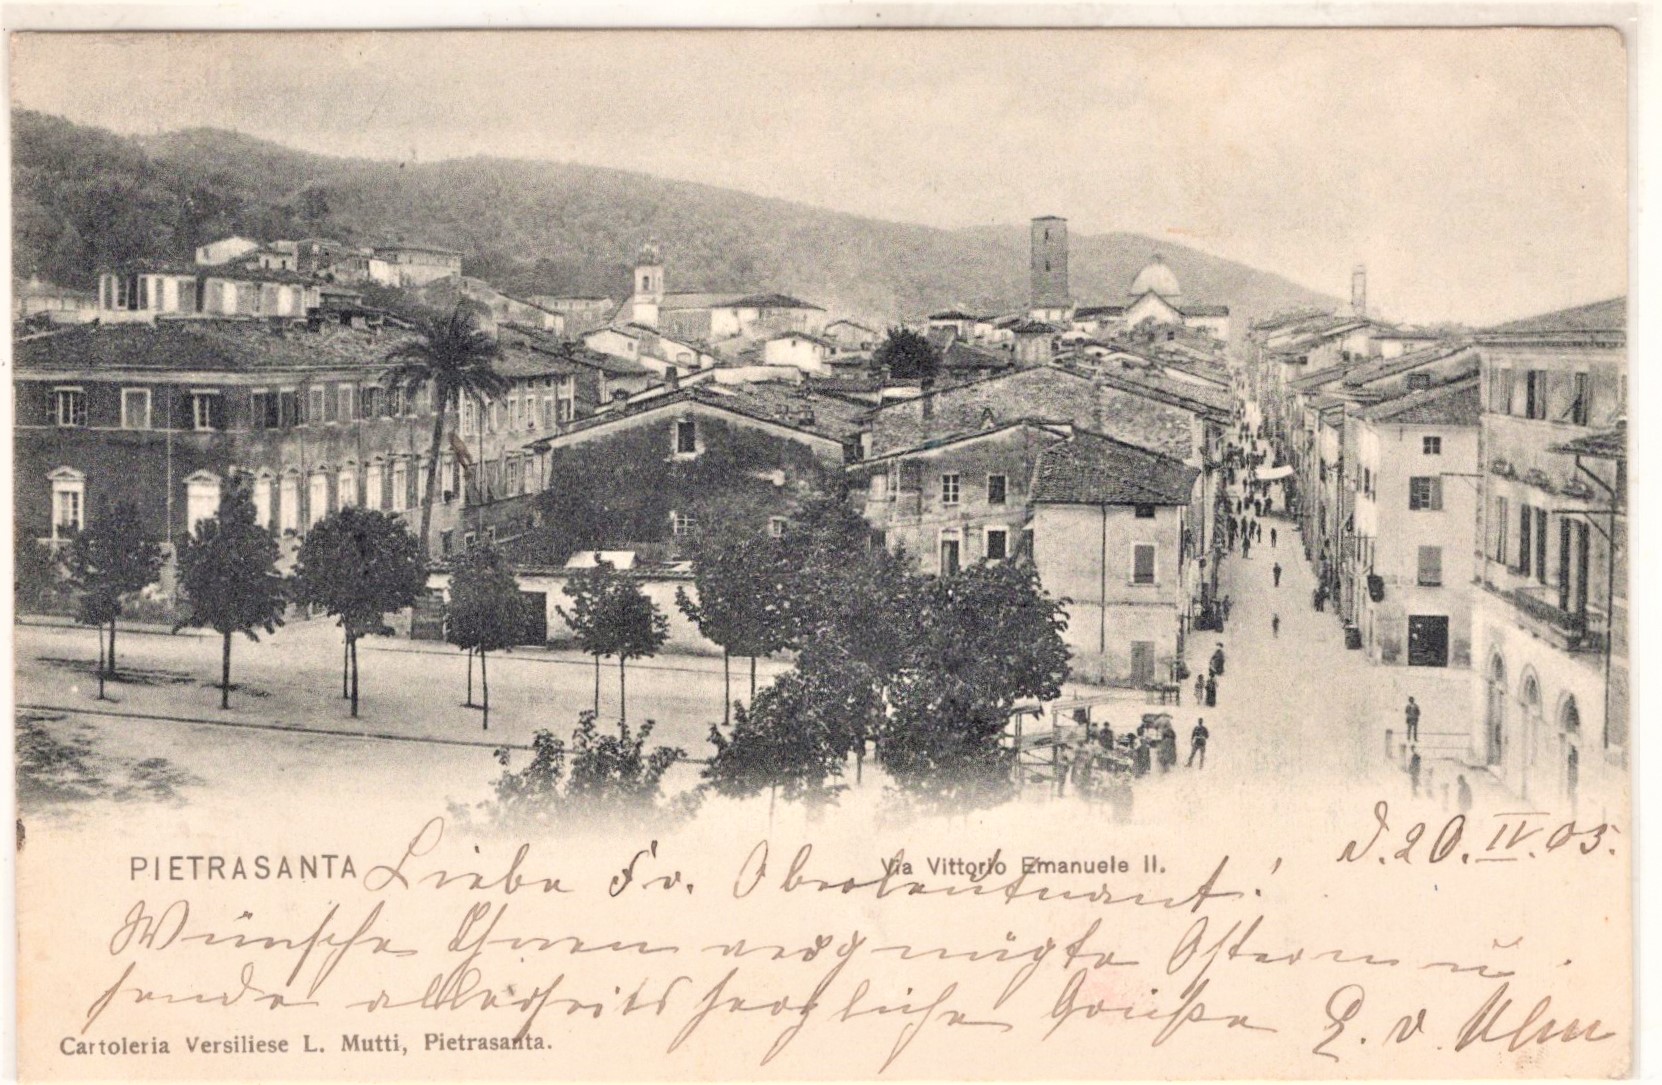 PIETRASANTA
Via Vittorio Emanuele II.
d. 20. IV. 05.
Liebe Fr. Oberleutnant!
Wünsche Ihnen vergnügte Ostern u.
sende allerseits herzliche Grüße
v. Ulm
Cartoleria Versiliese L. Mutti, Pietrasanta.